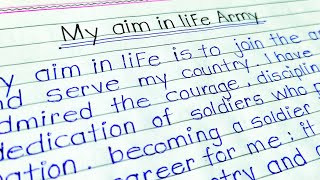 My aim in life Army
aim in life is to join the
serve my country. I have
admired the courage, discipline
dedication of soldiers who
becoming a soldier
career for me; it
and